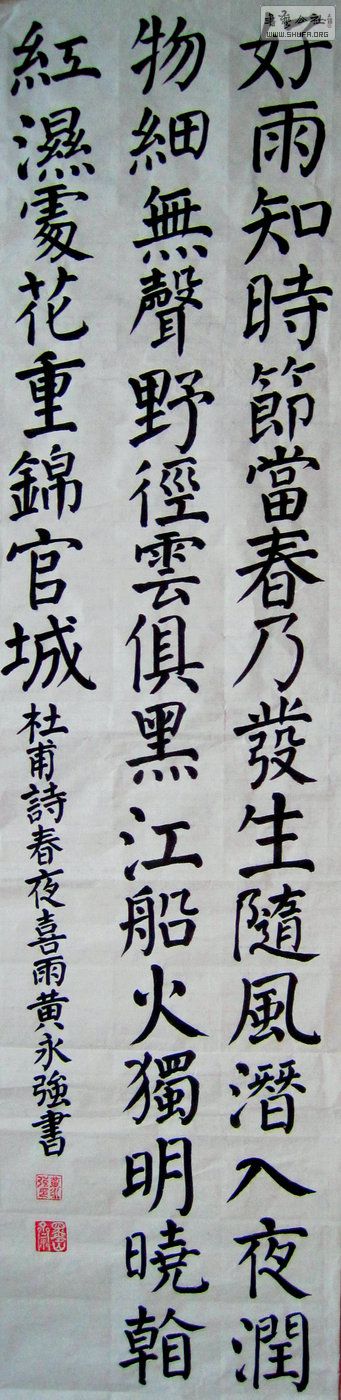 好雨知時節當春乃發生隨風潛入夜潤
物細無聲野徑雲俱黑江船火獨明曉看
紅濕處花重錦官城
杜甫詩春夜喜雨黄永強書
WWW.SHUFA.ORG